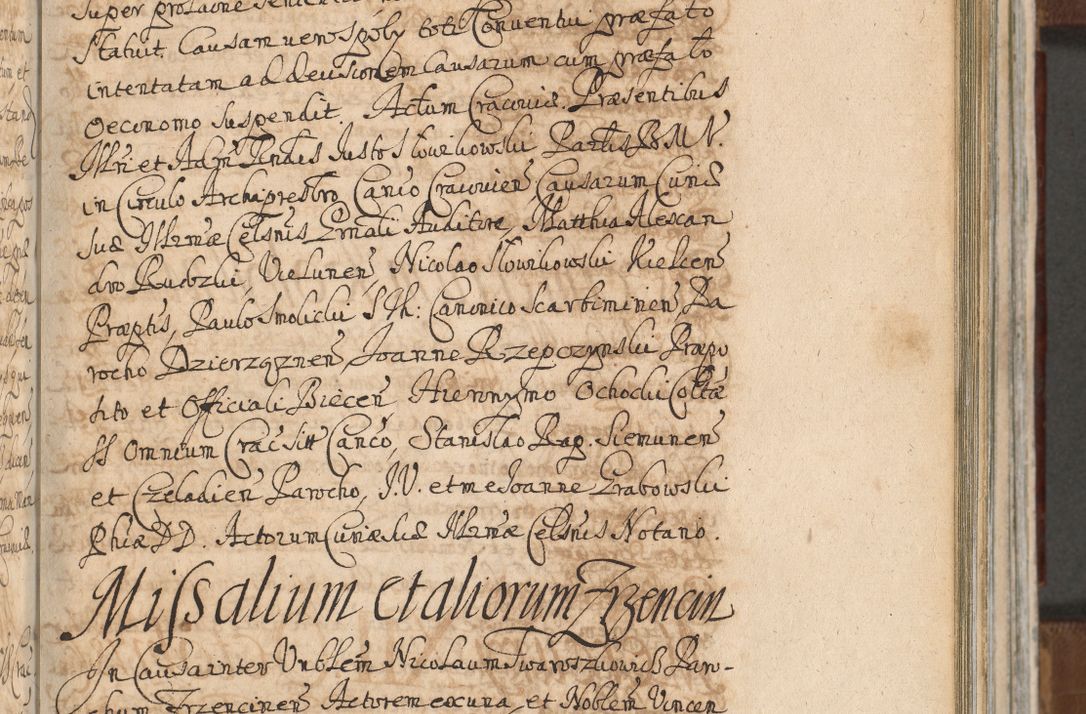 super prolaone
statuit. Causam vero sgoły toti Conventui præfato
intentatam ad decisionem Causarum cum præfato
Oeconomo suspendit. Actum Cracoviæ. Præsentibus
Illri et Adm Rndis Justo Słowikowski Partis B M V.
in Circulo Archipresbro Canco Cracovien Causarum Curiæ
suæ Illrmæ Celsnis Gnali Auditore, Matthia Alexan
dro Rudzki, Vielunen, Nicolao Słowikowski Kielcen
Præptis, Paulo Smolicki S Th: Canonico Scarbimirien, Pa
rocho Dzierząznen, Joanne Rzepczynski Præpo
sito et Officiali Biecen, Hieronymo Ochocki Coltæ
SS Omnium Crac Sitt Canco, Stanislao Rap. Siemunen
et Czeladien Parocho, J.V. et me Joanne Grabowski
Phiæ D D. Actorum Curiæ suæ Illrmæ Celsnis Notario.
Missalium et aliorum Trzencin
In Causa inter Vnblem Nicolaum Twaroszkowic Paro-
chum Trzencinen Actorem ex una, et Noblem Vincen